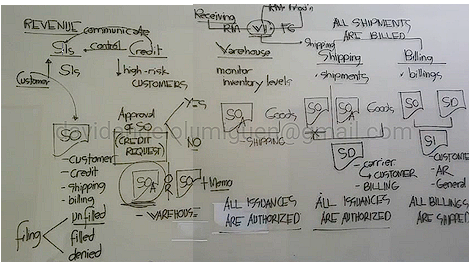 REVENUE
communicate
Sils
control
Credit
Sils
high-risk
CUSTOMERS
Customer
SO
- customer
- credit
- shipping
- billing
unfilled
filing
filled
denied
Approval
of SO
(CREDIT
REQUEST)
YES
NO
SO
A
SO
+ Memo
- WAREHOUSE
Receiving
RM
WH
FG
Shipping
Warehouse
monitor
inventory levels
SO
A
Goods
- SHIPPING
ALL ISSUANCES
ARE AUTHORIZED
ALL SHIPMENTS
ARE BILLED
Shipping
• shipments
SO
SO
A
Goods
SD
- carrier
CUSTOMER
- BILLING
ALL ISSUANCES
ARE AUTHORIZED
Billing
• billings
SO
SD
SI
CUSTOME
- AR
- General
ALL BILLINGS
ARE SHIPPED
@gmail.com